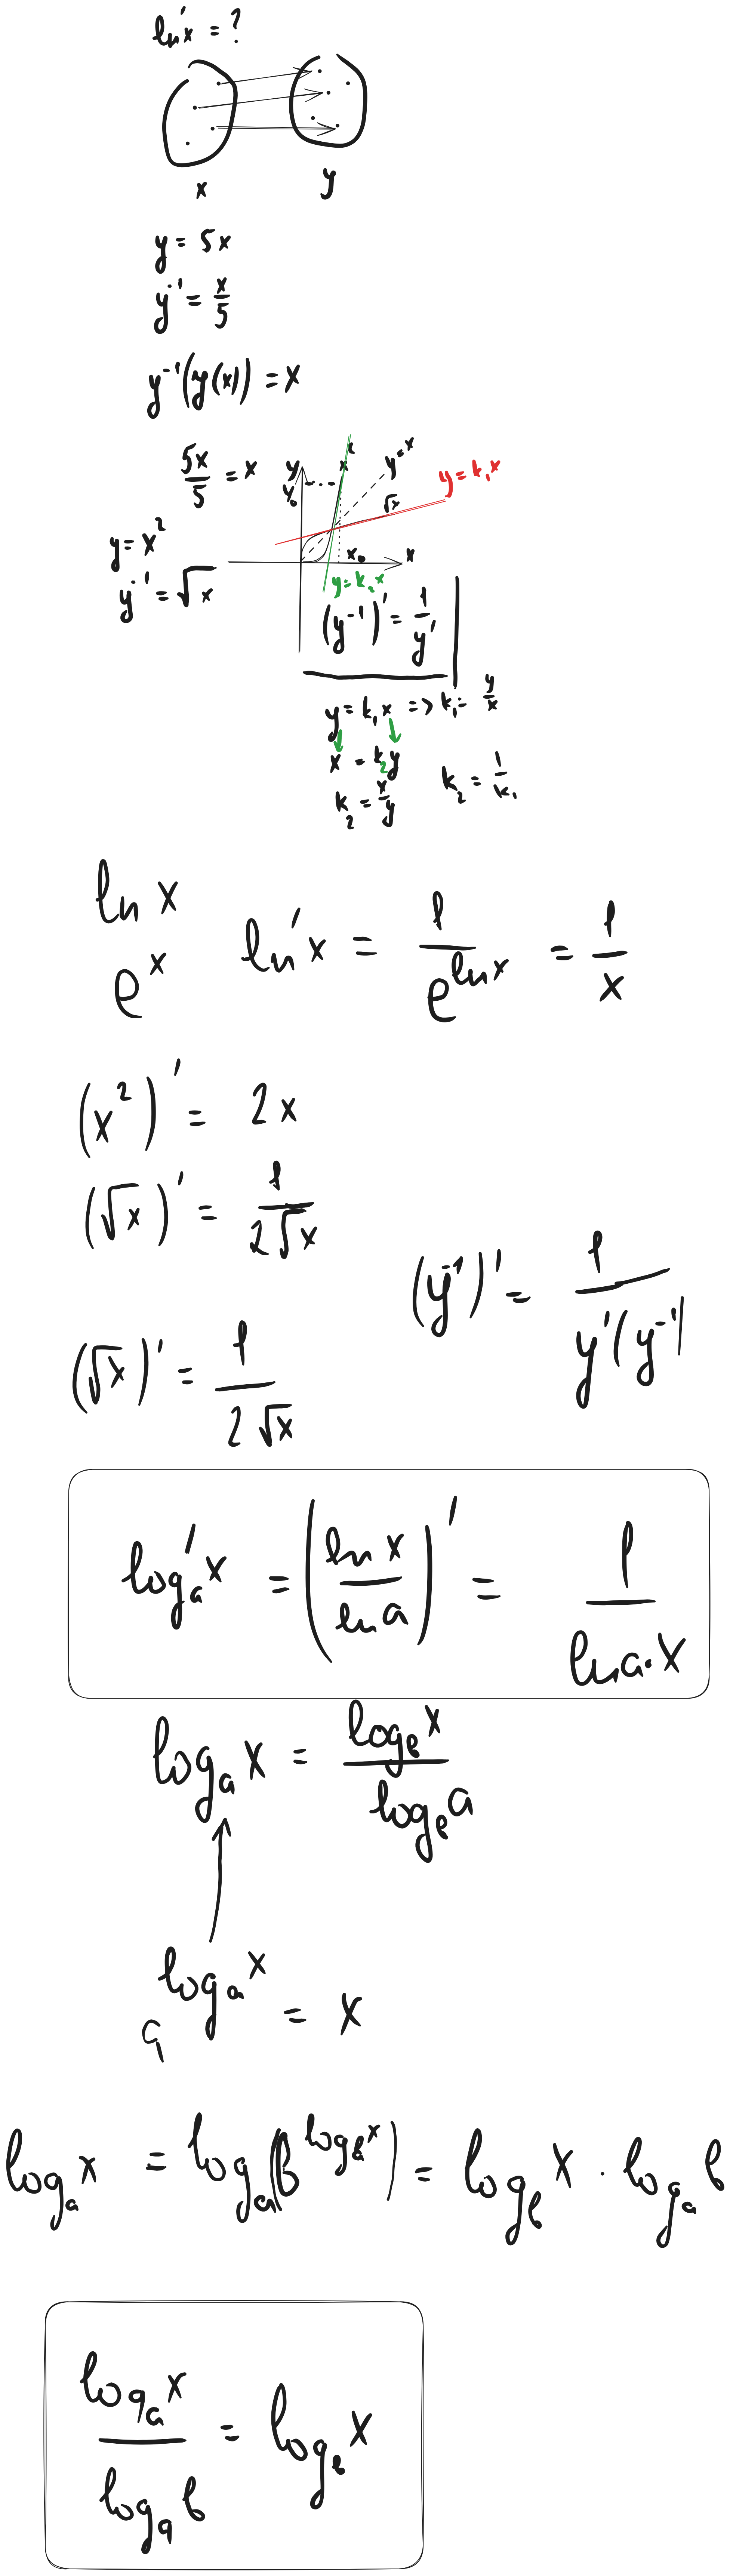 ln'x = ?
x y
y = 5x
y⁻¹ = x/5
y⁻¹(y(x)) = x
5x/5 = x
y = x²
y⁻¹ = √x
y y₀ x² y=x √x x₀ x
y = k₁x
y = k₂x
(y⁻¹)' = 1/y'
y = k₁x => k₁ = y/x
x = k₂y
k₂ = x/y k₂ = 1/k₁
ln x
eˣ ln'x = 1/e^(ln x) = 1/x
(x²)' = 2x
(√x)' = 1/(2√x)
(y⁻¹)' = 1/(y'(y⁻¹)
(√x)' = 1/(2√x)
logₐ'x = (ln x/ln a)' = 1/(ln a·x)
logₐx = log_b x/log_b a
a^(logₐx) = x
logₐx = logₐ(b^(log_b x)) = log_b x · logₐb
logₐx/logₐb = log_b x